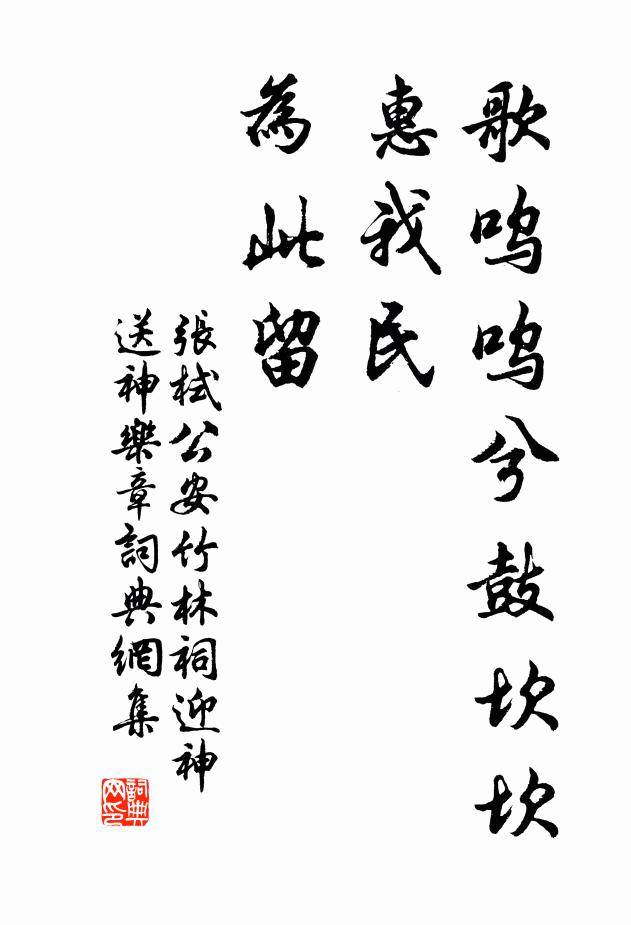 歌嗚嗚兮鼓坎坎
惠我民
為此留
張栻公安竹林祠迎神
送神樂章詞典網集
詞典
网印